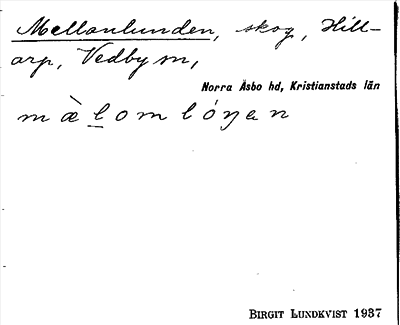 Mellanlunden, skog, Hill-
arp, Vedby sn,
Norra Åsbo hd, Kristianstads län
mæ̀l̲omlóŋan
BIRGIT LUNDKVIST 1937